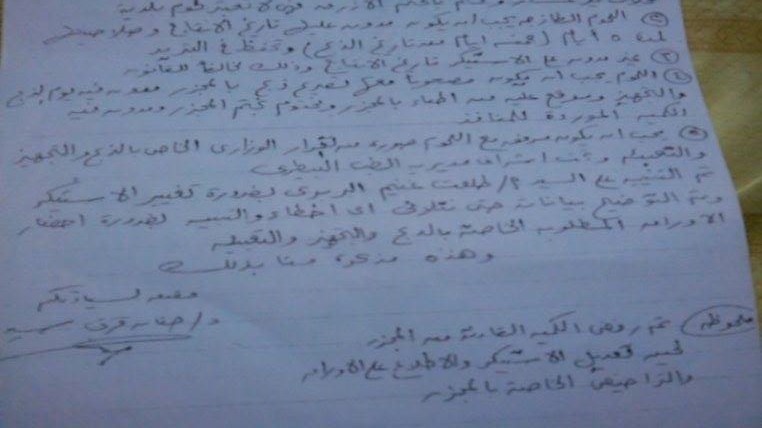 اللحوم الطازجه يجب أن يكون مدون عليها تاريخ الانتاج وصلاحيتها
لمدة ٥ أيام (خمسة أيام من تاريخ الذبح) وتحفظ فى التبريد
٣ غير مدون على الاستيكر تاريخ الانتاج وذلك مخالفا للقانون
٤ اللحوم يجب أن يكون مصحوبا معها تصريح ذبح بالمجزر مدون فيه يوم الذبح
والتجهيز وموقع عليه من اطباء بالمجزر ومختوم بختم المجزر ومدون فيه
الكميه الموردة للمنافذ
٥ يجب أن يكون مرفق مع اللحوم صورة من القرار الوزارى الخاص بالذبح والتجهيز
والتعبئه وتحت اشراف مديرية الطب البيطرى
تم التنبيه على السيد / طلعت غنيم لضرورة تغيير الاستيكر
ويتم التوضيح بيانات حتى نتلافى اى اخطاء والتنبيه لضرورة احضار
الاوراق المطلوبه الخاصة بالذبح والتجهيز والتعبئه
وهذه مذكرة منا بذلك
مقدمه لسيادتكم
د/
ملحوظه تم رفض الكميه القادمة من المجزر
لحين تعديل الاستيكر والاطلاع على الاوراق
والتراخيص الخاصة بالمجزر